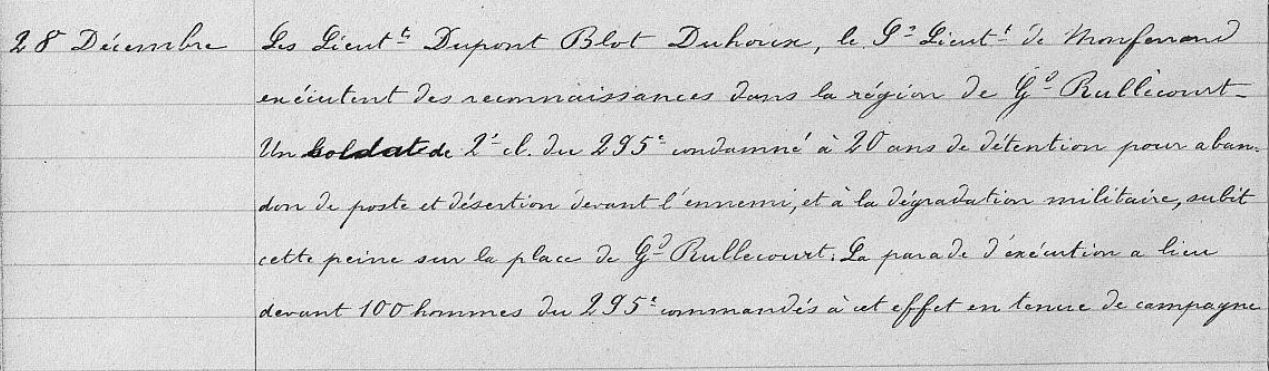 28 Décembre Les Lieut.ts Dupont Blot Duhoux, le S.s Lieut.t de Monferrand
exécutent des reconnaissances dans la région de G.d Rullecourt_
Un soldat de 2.e cl. du 295.e condamné à 20 ans de détention pour aban-
don de poste et désertion devant l'ennemi, et à la dégradation militaire, subit
cette peine sur la place de G.d Rullecourt. La parade d'exécution a lieu
devant 100 hommes du 295.e commandés à cet effet en tenue de campagne